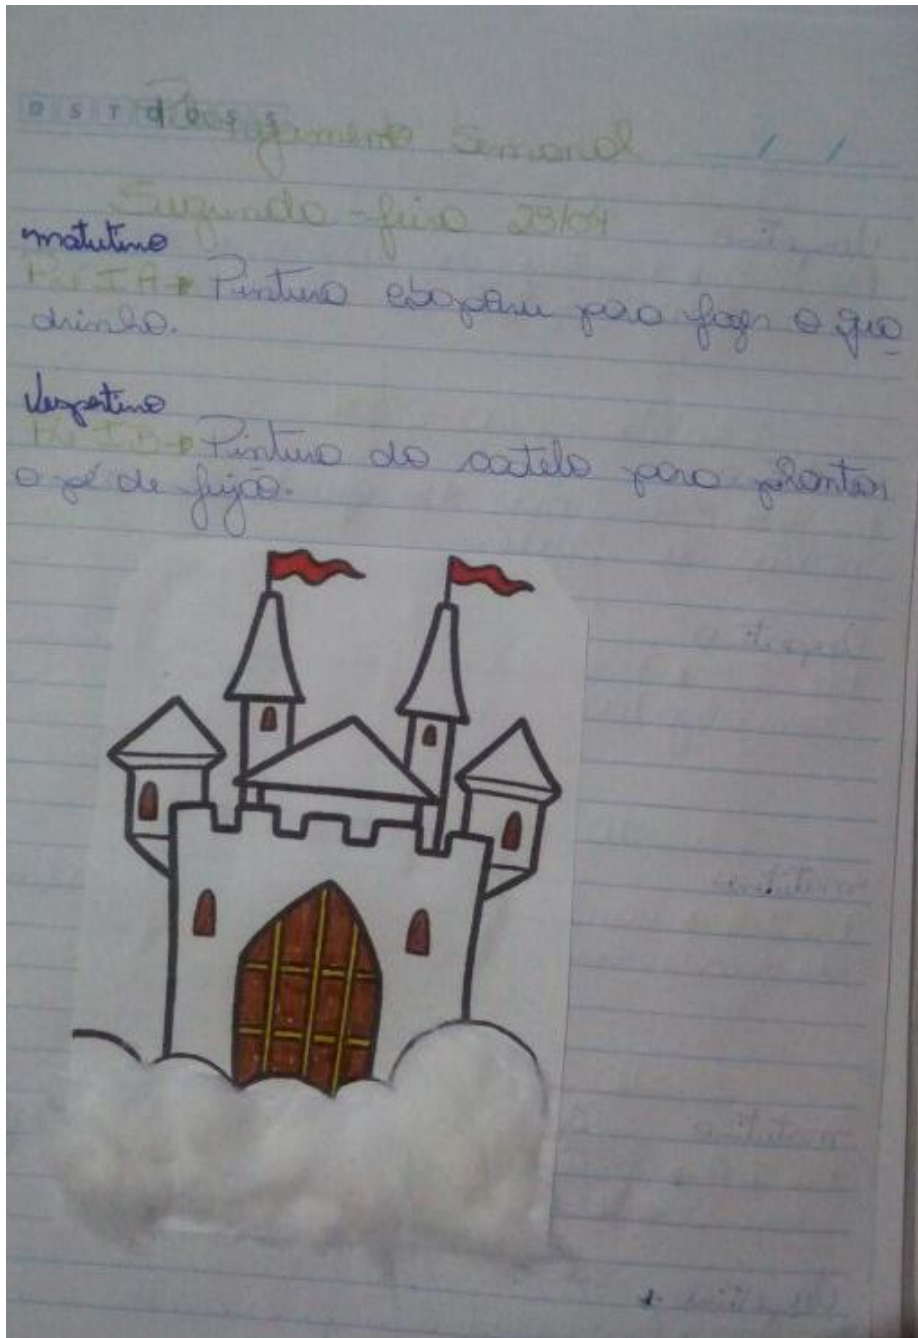 D S T Q Q S S
Planejamento Semanal / /
Segunda-feira 23/04
matutino
Pré I A → Pintura para fazer o qua
drinho.
Vespertino
Pré I B → Pintura do catelo para plantar
o pé de feijão.